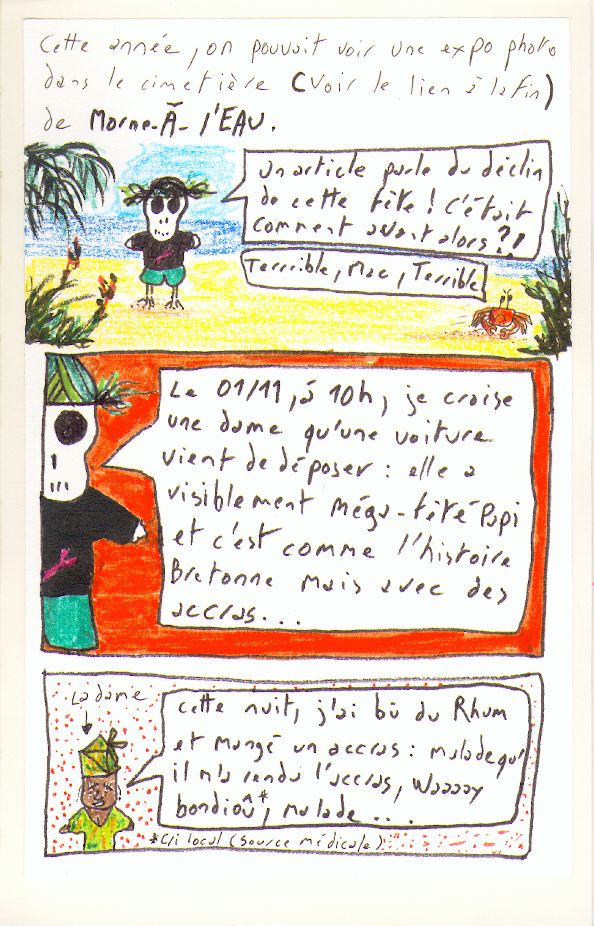 Cette année, on pouvait voir une expo photo
dans le cimetière (voir le lien à la fin)
de Morne-À-l'EAU.
Un article parle du déclin
de cette fête ! C'était
comment avant alors ?!
Terrrible, Mac, Terrible
Le 01/11, à 10h, je croise
une dame qu'une voiture
vient de déposer : elle a
visiblement méga-fêté Papi
et c'est comme l'histoire
Bretonne mais avec des
accras...
La dame
cette nuit, j'ai bû du Rhum
et mangé un accras : malade qu'
il m'a rendu l'accras, Waaaay
bondioû*, malade....
*Cri local (source médicale)